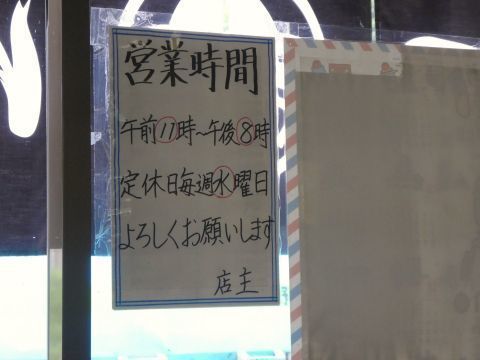 営業時間
午前11時～午後8時
定休日毎週水曜日
よろしくお願いします
店主